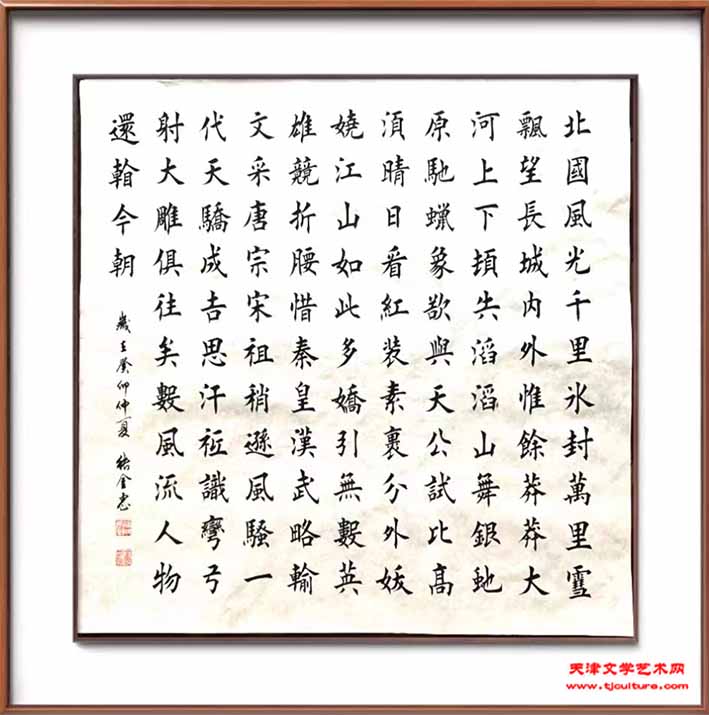 北國風光千里氷封萬里雪
飄望長城内外惟餘莽莽大
河上下頓失滔滔山舞銀虵
原馳蠟象欲與天公試比高
須晴日看紅裝素裹分外妖
嬈江山如此多嬌引無數英
雄競折腰惜秦皇漢武略輸
文采唐宗宋祖稍遜風騷一
代天驕成吉思汗祗識彎弓
射大雕俱往矣數風流人物
還看今朝
歲在癸卯仲夏 金忠
天津文学艺术网
www.tjculture.com